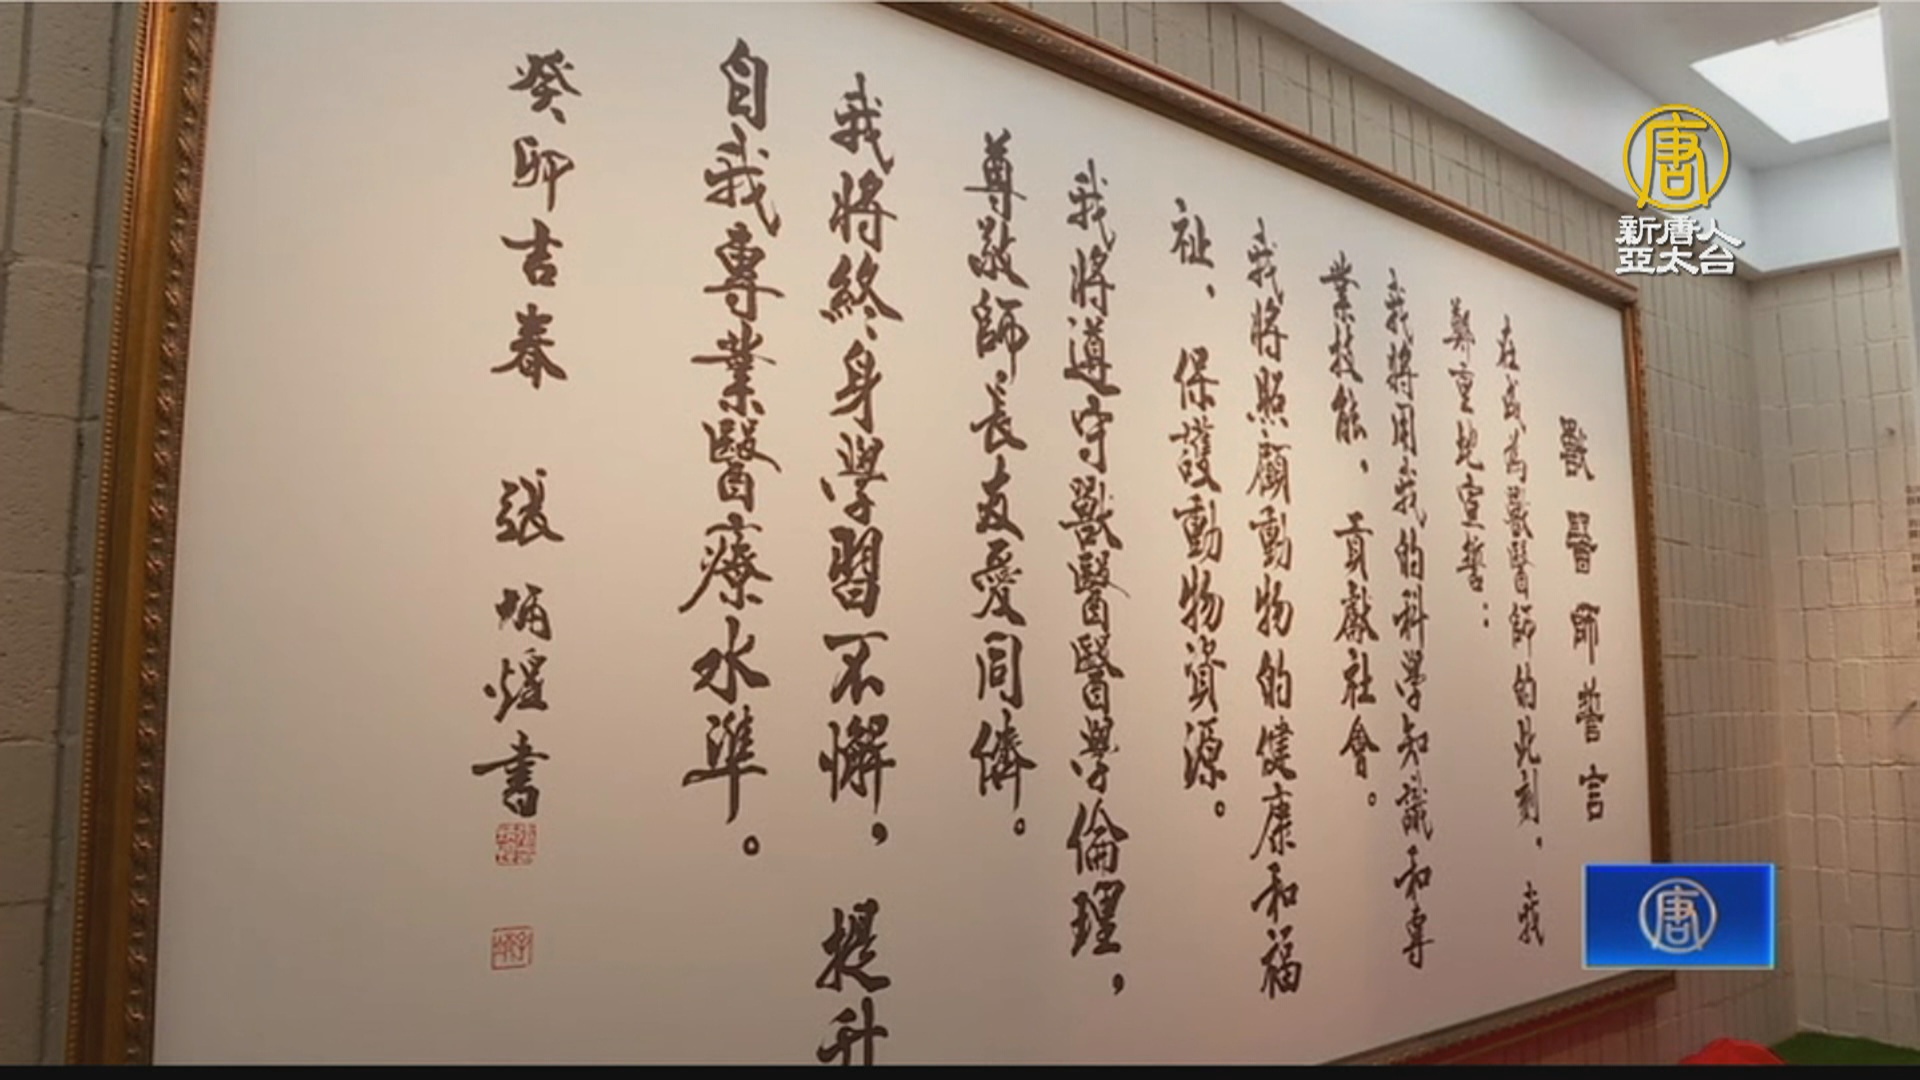 獸醫師誓言
在成為獸醫師的此刻，我
鄭重地宣誓：
我將用我的科學知識和專
業技能，貢獻社會。
我將照顧動物的健康和福
祉，保護動物資源。
我將遵守獸醫醫學倫理，
尊敬師長友愛同儕。
我將終身學習不懈，提升
自我專業醫療水準。
癸卯吉春 張炳煌書
唐
新唐人
亞太台
唐